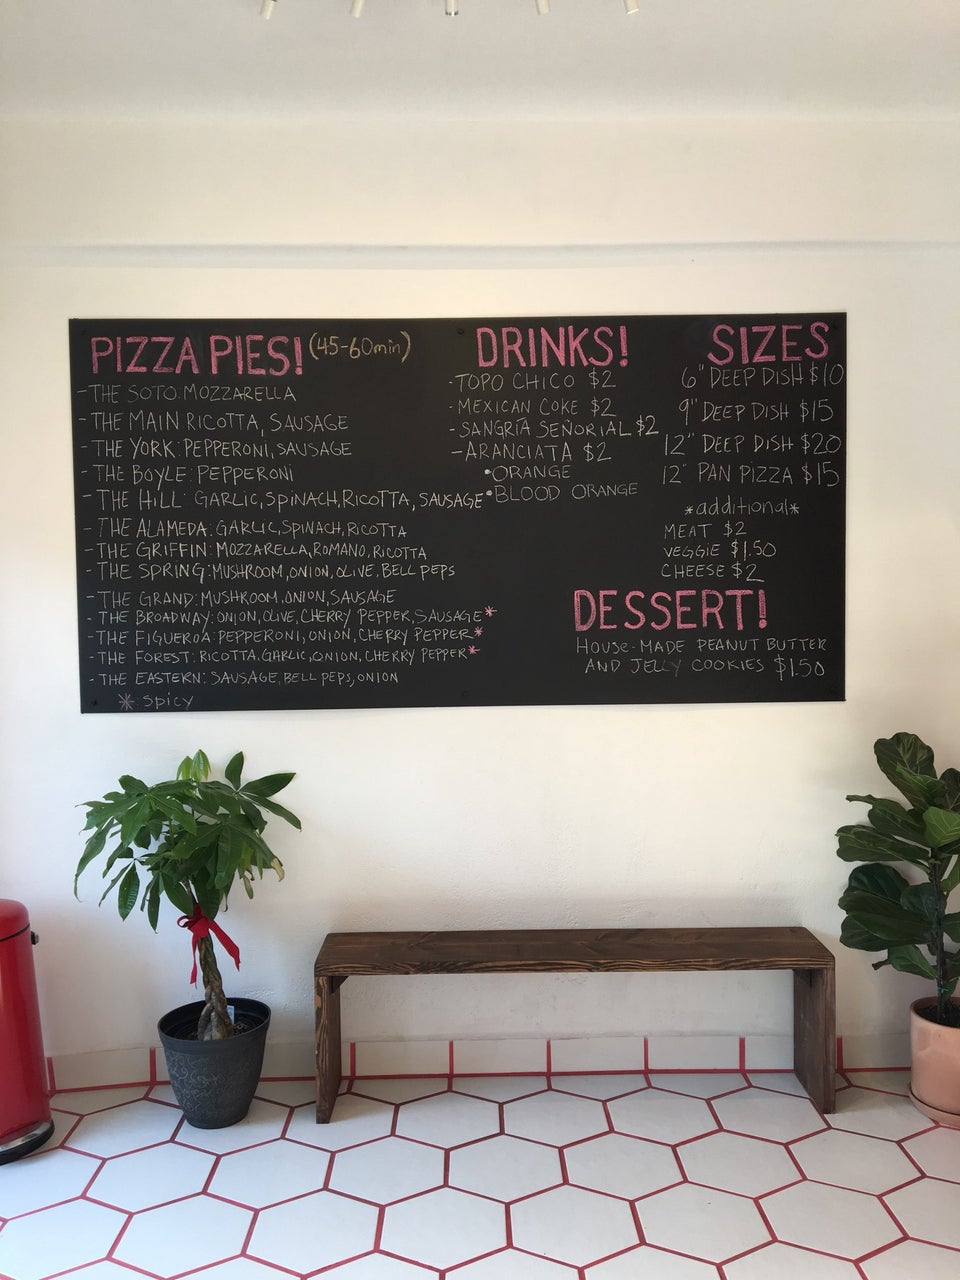 PIZZA PIES! (45-60min)
- THE SOTO: MOZZARELLA
- THE MAIN RICOTTA, SAUSAGE
- THE YORK: PEPPERONI, SAUSAGE
- THE BOYLE: PEPPERONI
- THE HILL: GARLIC, SPINACH, RICOTTA, SAUSAGE
- THE ALAMEDA: GARLIC, SPINACH, RICOTTA
- THE GRIFFIN: MOZZARELLA, ROMANO, RICOTTA
- THE SPRING: MUSHROOM, ONION, OLIVE, BELL PEPS
- THE GRAND: MUSHROOM, ONION, SAUSAGE
- THE BROADWAY: ONION, OLIVE, CHERRY PEPPER, SAUSAGE*
- THE FIGUEROA: PEPPERONI, ONION, CHERRY PEPPER*
- THE FOREST: RICOTTA, GARLIC, ONION, CHERRY PEPPER*
- THE EASTERN: SAUSAGE, BELL PEPS, ONION
*: spicy
DRINKS!
- TOPO CHICO $2
- MEXICAN COKE $2
- SANGRÍA SEÑORIAL $2
- ARANCIATA $2
• ORANGE
• BLOOD ORANGE
SIZES
6" DEEP DISH $10
9" DEEP DISH $15
12" DEEP DISH $20
12" PAN PIZZA $15
*additional*
MEAT $2
VEGGIE $1.50
CHEESE $2
DESSERT!
HOUSE-MADE PEANUT BUTTER
AND JELLY COOKIES $1.50